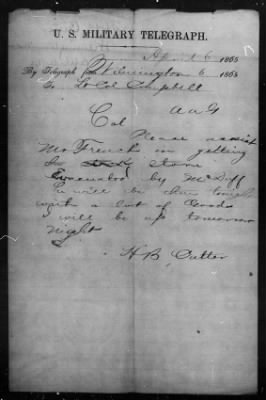 U. S. MILITARY TELEGRAPH.
April 6 1865
By Telegraph from Wilmington 6 1865
To Lt Col Campbell
A A G
Col
Please assist
Mr French in getting
store
Evacuated by McDuff
will be here tonight
with a lot of Goods
I will be up tomorrow
night
H B Cutter